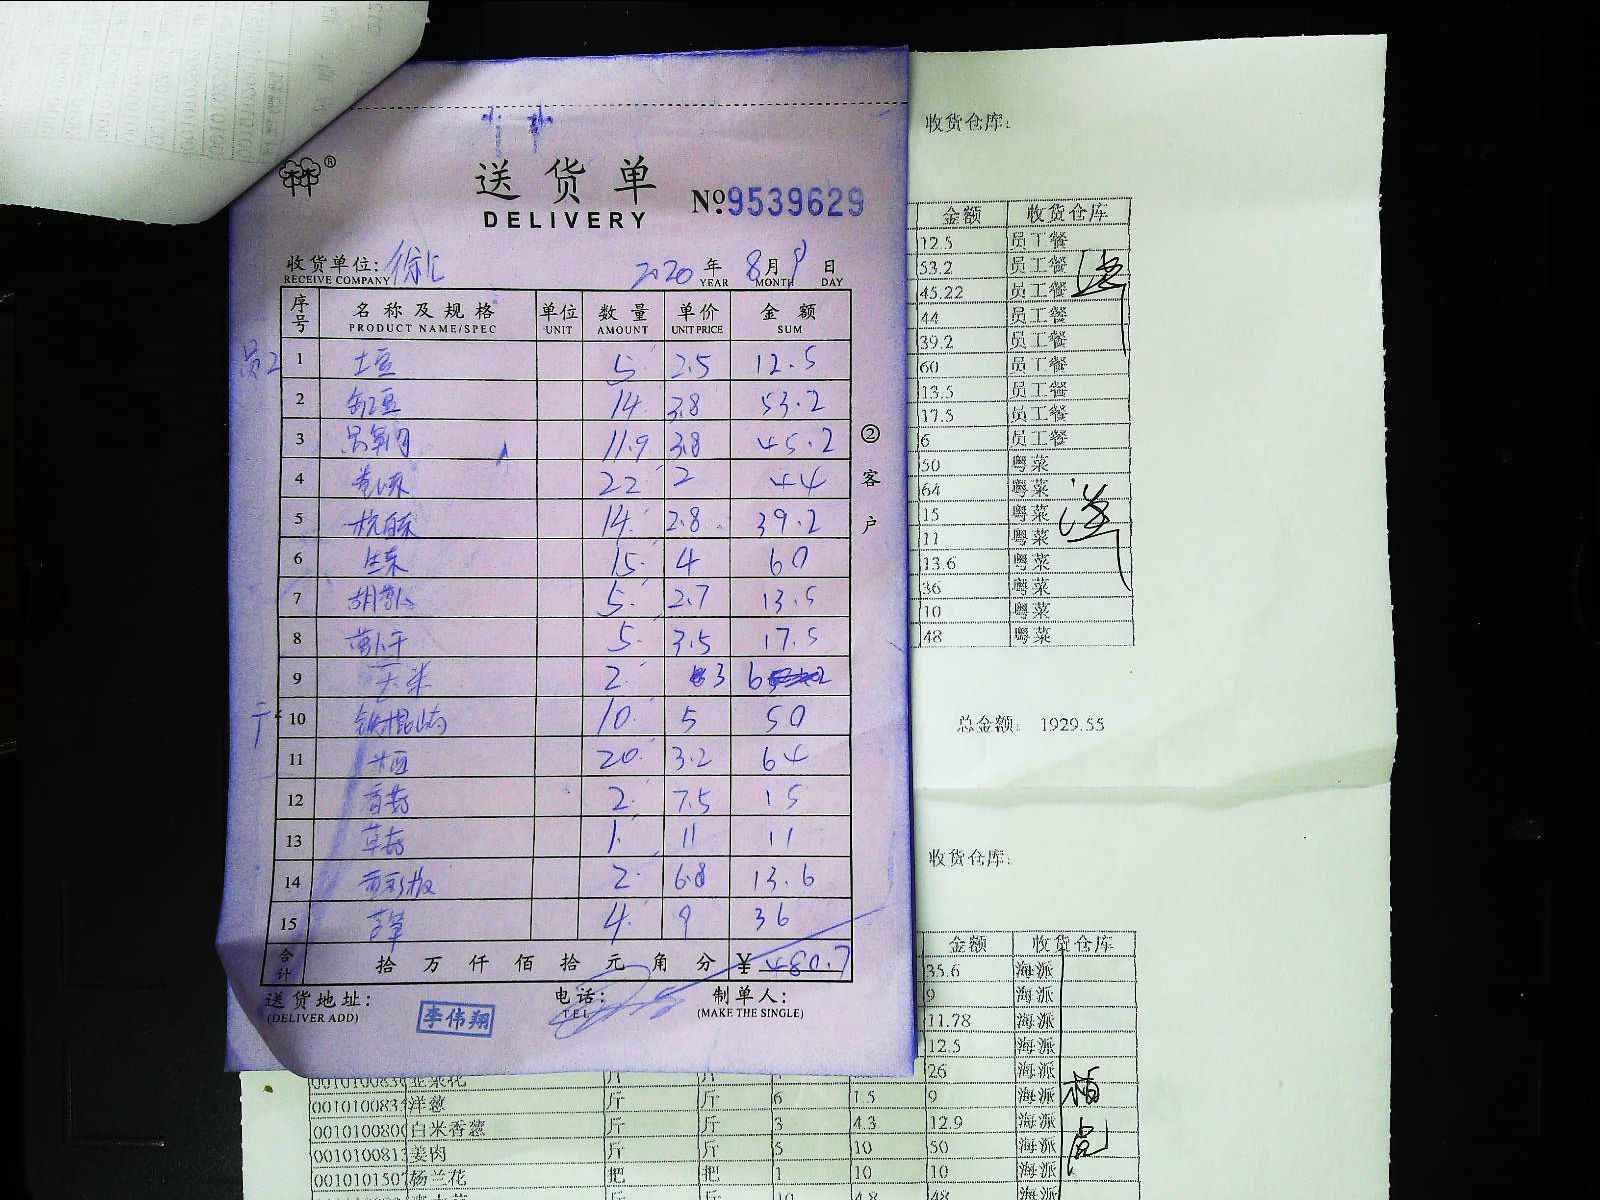 送货单
DELIVERY
№9539629
收货单位: 徐汇 2020 年 8 月 9 日
RECEIVE COMPANY YEAR MONTH DAY
序号 名称及规格 单位 数量 单价 金额
PRODUCT NAME/SPEC UNIT AMOUNT UNIT PRICE SUM
员工 1 土豆 5 2.5 12.5
2 豇豆 14 3.8 53.2
3 11.9 3.8 45.2
4 22 2 44
5 杭白菜 14 2.8 39.2
6 生菜 15 4 60
7 胡萝卜 5 2.7 13.5
8 萝卜干 5 3.5 17.5
9 2 3 6
10 铁棍山药 10 5 50
11 20 3.2 64
12 香菇 2 7.5 15
13 草菇 1 11 11
14 2 6.8 13.6
15 4 9 36
合计 拾 万 仟 佰 拾 元 角 分 ¥ 480.7
送货地址: 电话: 制单人:
(DELIVER ADD) TEL (MAKE THE SINGLE)
李伟翔
②客户
收货仓库:
金额 收货仓库
12.5 员工餐
53.2 员工餐
45.22 员工餐
44 员工餐
39.2 员工餐
60 员工餐
13.5 员工餐
17.5 员工餐
6 员工餐
50 粤菜
64 粤菜
15 粤菜
11 粤菜
13.6 粤菜
36 粤菜
10 粤菜
48 粤菜
总金额: 1929.55
收货仓库:
金额 收货仓库
35.6 海派
9 海派
11.78 海派
12.5 海派
韭菜花 斤 斤 26 海派
洋葱 斤 斤 6 1.5 9 海派
白米香葱 斤 斤 3 4.3 12.9 海派
姜肉 斤 斤 5 10 50 海派
杨兰花 把 把 1 10 10 海派
斤 斤 10 4.8 48 海派